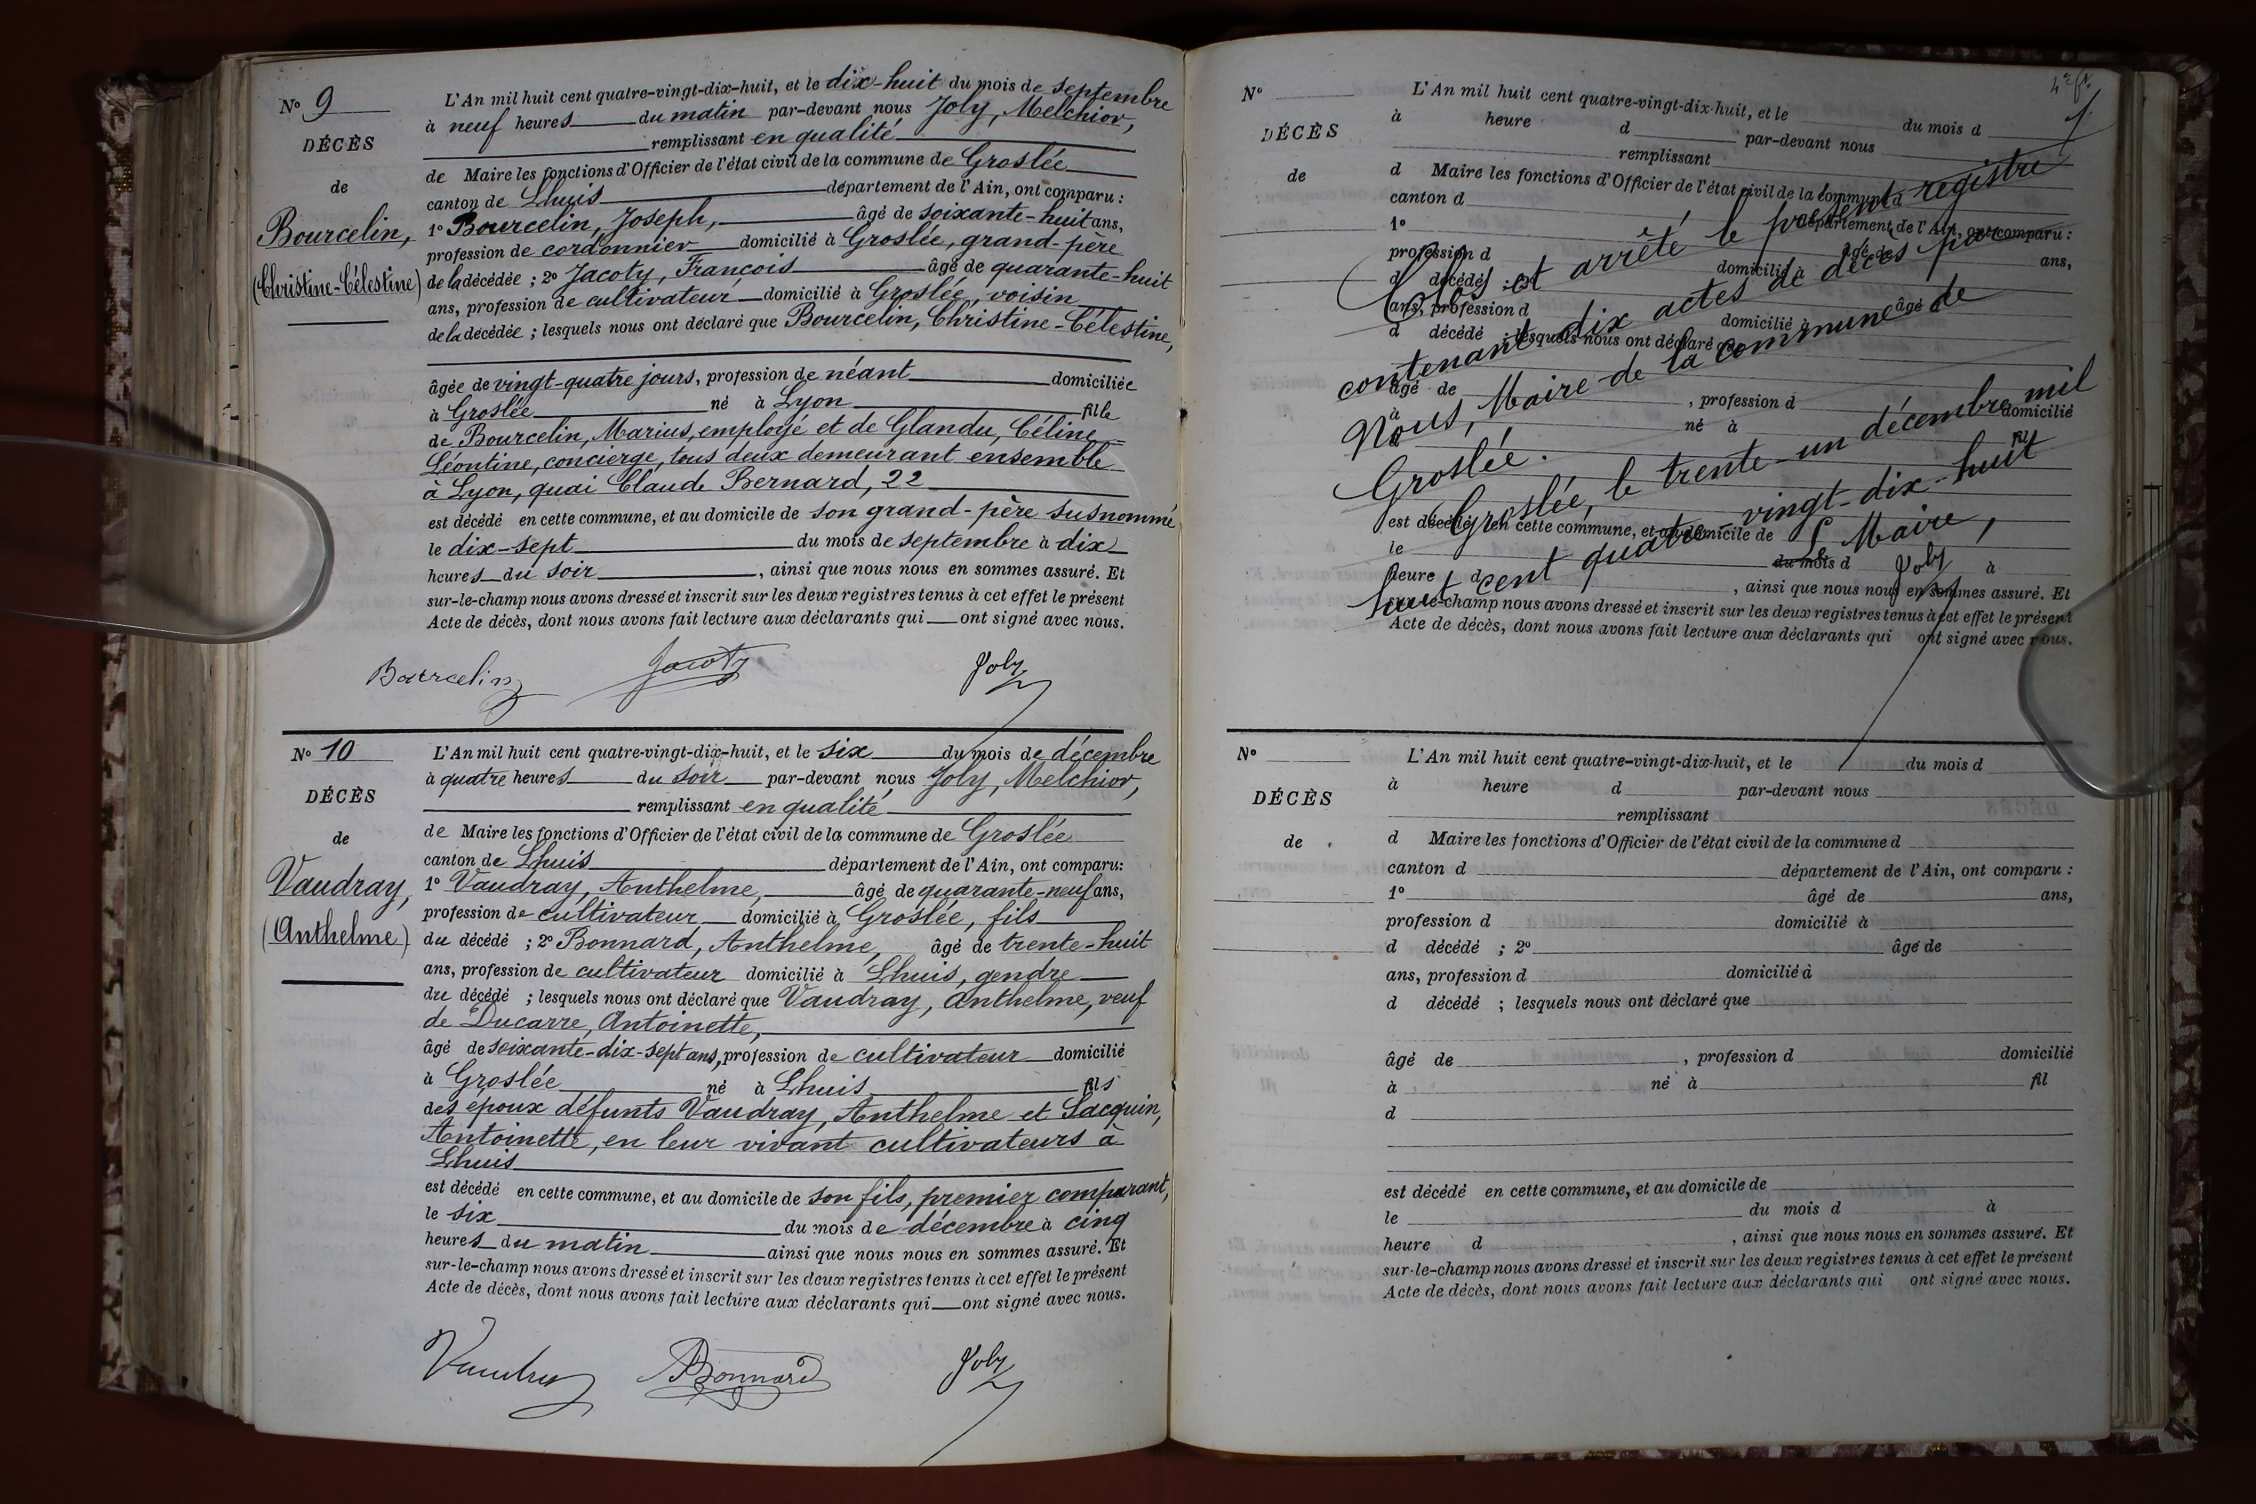 N° 9
DÉCÈS
de
Bourcelin,
(Christine-Célestine)
L'An mil huit cent quatre-vingt-dix-huit, et le dix-huit du mois de septembre
à neuf heures du matin par-devant nous Joly, Melchior,
remplissant en qualité
de Maire les fonctions d'Officier de l'état civil de la commune de Groslée
canton de Lhuis département de l'Ain, ont comparu :
1° Bourcelin, Joseph, âgé de soixante-huit ans,
profession de cordonnier domicilié à Groslée, grand-père
de la décédée ; 2° Jacoty, François âgé de quarante-huit
ans, profession de cultivateur domicilié à Groslée, voisin
de la décédée ; lesquels nous ont déclaré que Bourcelin, Christine-Célestine,
âgée de vingt-quatre jours, profession de néant domiciliée
à Groslée né à Lyon fille
de Bourcelin, Marius, employé et de Glandu, Céline
Léontine, concierge, tous deux demeurant ensemble
à Lyon, quai Claude Bernard, 22
est décédé en cette commune, et au domicile de son grand-père susnommé
le dix-sept du mois de septembre à dix
heures du soir, ainsi que nous nous en sommes assuré. Et
sur-le-champ nous avons dressé et inscrit sur les deux registres tenus à cet effet le présent
Acte de décès, dont nous avons fait lecture aux déclarants qui ont signé avec nous.
Bourcelin Jacoty Joly
N° 10
DÉCÈS
de
Vaudray,
(Anthelme)
L'An mil huit cent quatre-vingt-dix-huit, et le six du mois de décembre
à quatre heures du soir par-devant nous Joly, Melchior,
remplissant en qualité
de Maire les fonctions d'Officier de l'état civil de la commune de Groslée
canton de Lhuis département de l'Ain, ont comparu:
1° Vaudray, Anthelme, âgé de quarante-neuf ans,
profession de cultivateur domicilié à Groslée, fils
du décédé ; 2° Bonnard, Anthelme, âgé de trente-huit
ans, profession de cultivateur domicilié à Lhuis, gendre
du décédé ; lesquels nous ont déclaré que Vaudray, Anthelme, veuf
de Ducarre, Antoinette,
âgé de soixante-dix-sept ans, profession de cultivateur domicilié
à Groslée né à Lhuis fils
des époux défunts Vaudray, Anthelme et Sacquin,
Antoinette, en leur vivant cultivateurs à
Lhuis
est décédé en cette commune, et au domicile de son fils, premier comparant,
le six du mois de décembre à cinq
heures du matin ainsi que nous nous en sommes assuré. Et
sur-le-champ nous avons dressé et inscrit sur les deux registres tenus à cet effet le présent
Acte de décès, dont nous avons fait lecture aux déclarants qui ont signé avec nous.
Vaudray ABonnard Joly
N°
DÉCÈS
de
L'An mil huit cent quatre-vingt-dix-huit, et le du mois d
à heure d par-devant nous
remplissant
d Maire les fonctions d'Officier de l'état civil de la commune d
canton d département de l'Ain, ont comparu :
1° âgé de ans,
profession d domicilié à
d décédé ; 2° âgé de
ans, profession d domicilié à
d décédé ; lesquels nous ont déclaré que
âgé de , profession d domicilié
à né à fil
d
est décédé en cette commune, et au domicile de
le du mois d à
heure d , ainsi que nous nous en sommes assuré. Et
sur-le-champ nous avons dressé et inscrit sur les deux registres tenus à cet effet le présent
Acte de décès, dont nous avons fait lecture aux déclarants qui ont signé avec nous.
Clos et arrêté le présent registre
contenant dix actes de décès par
Nous, Maire de la commune de
Groslée.
Groslée, le trente-un décembre mil
huit cent quatre-vingt-dix-huit
L Maire,
Joly
N°
DÉCÈS
de
L'An mil huit cent quatre-vingt-dix-huit, et le du mois d
à heure d par-devant nous
remplissant
d Maire les fonctions d'Officier de l'état civil de la commune d
canton d département de l'Ain, ont comparu :
1° âgé de ans,
profession d domicilié à
d décédé ; 2° âgé de
ans, profession d domicilié à
d décédé ; lesquels nous ont déclaré que
âgé de , profession d domicilié
à né à fil
d
est décédé en cette commune, et au domicile de
le du mois d à
heure d , ainsi que nous nous en sommes assuré. Et
sur-le-champ nous avons dressé et inscrit sur les deux registres tenus à cet effet le présent
Acte de décès, dont nous avons fait lecture aux déclarants qui ont signé avec nous.